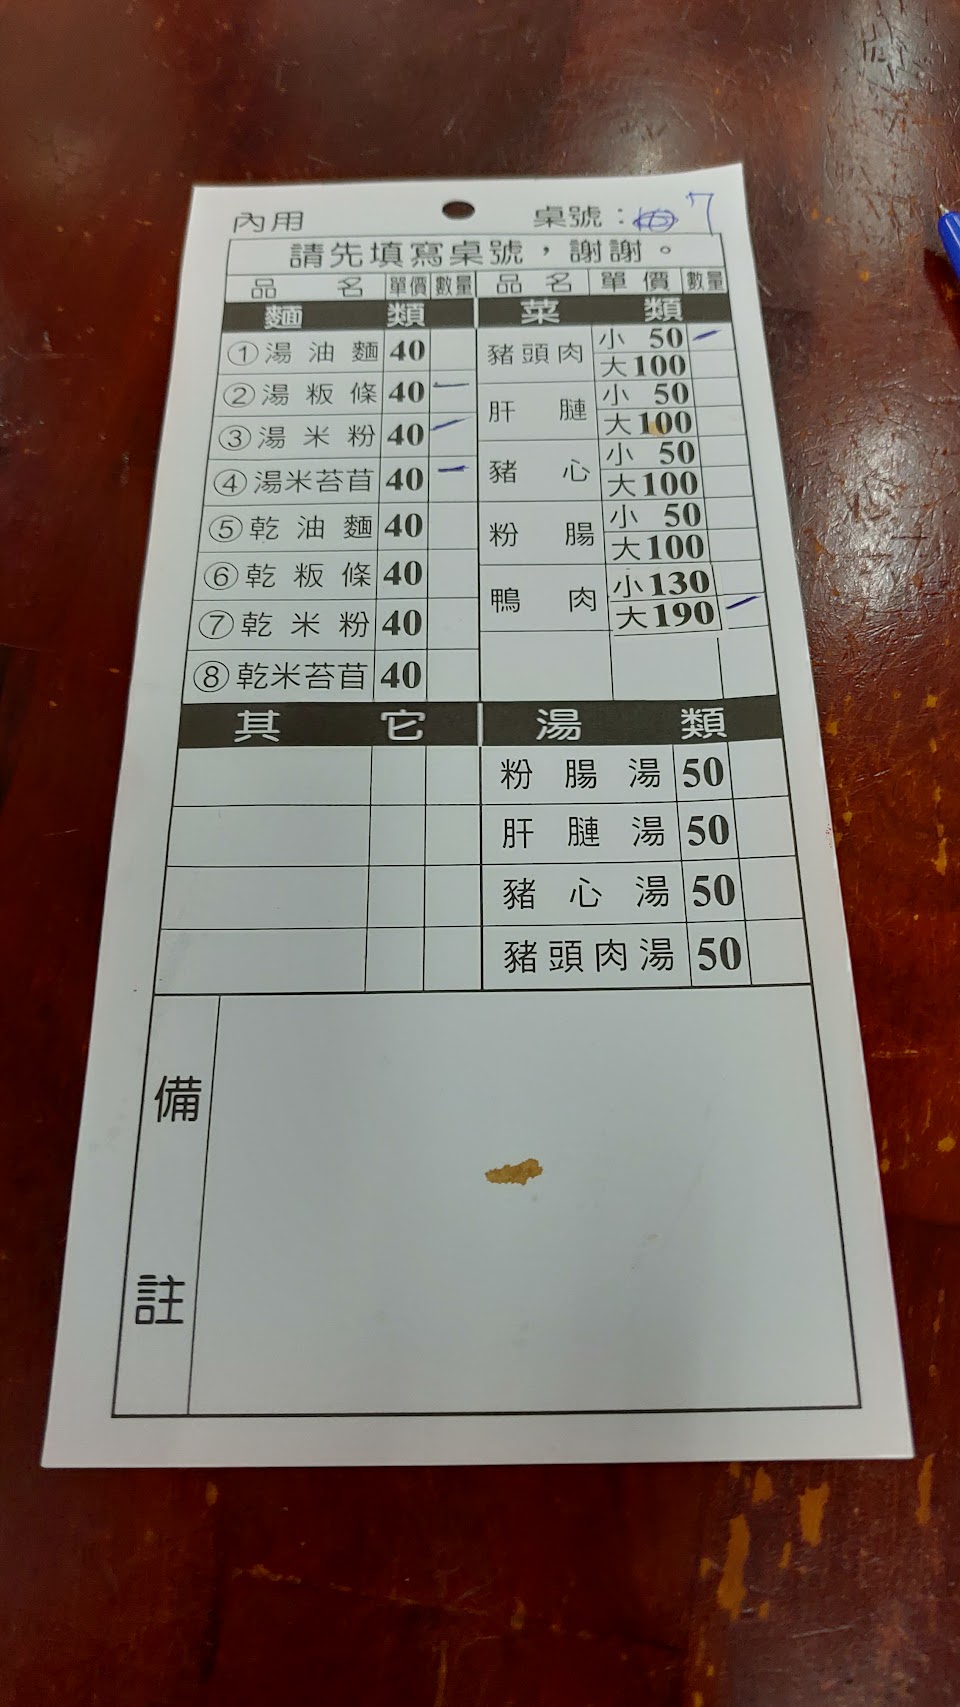 內用 桌號：7
請先填寫桌號，謝謝。
品名 單價 數量 品名 單價 數量
麵類 菜類
①湯油麵 40
②湯粄條 40 一
③湯米粉 40 一
④湯米苔苜 40 一
⑤乾油麵 40
⑥乾粄條 40
⑦乾米粉 40
⑧乾米苔苜 40
豬頭肉 小 50 一
大 100
肝膁 小 50
大 100
豬心 小 50
大 100
粉腸 小 50
大 100
鴨肉 小 130
大 190 一
其它 湯類
粉腸湯 50
肝膁湯 50
豬心湯 50
豬頭肉湯 50
備註